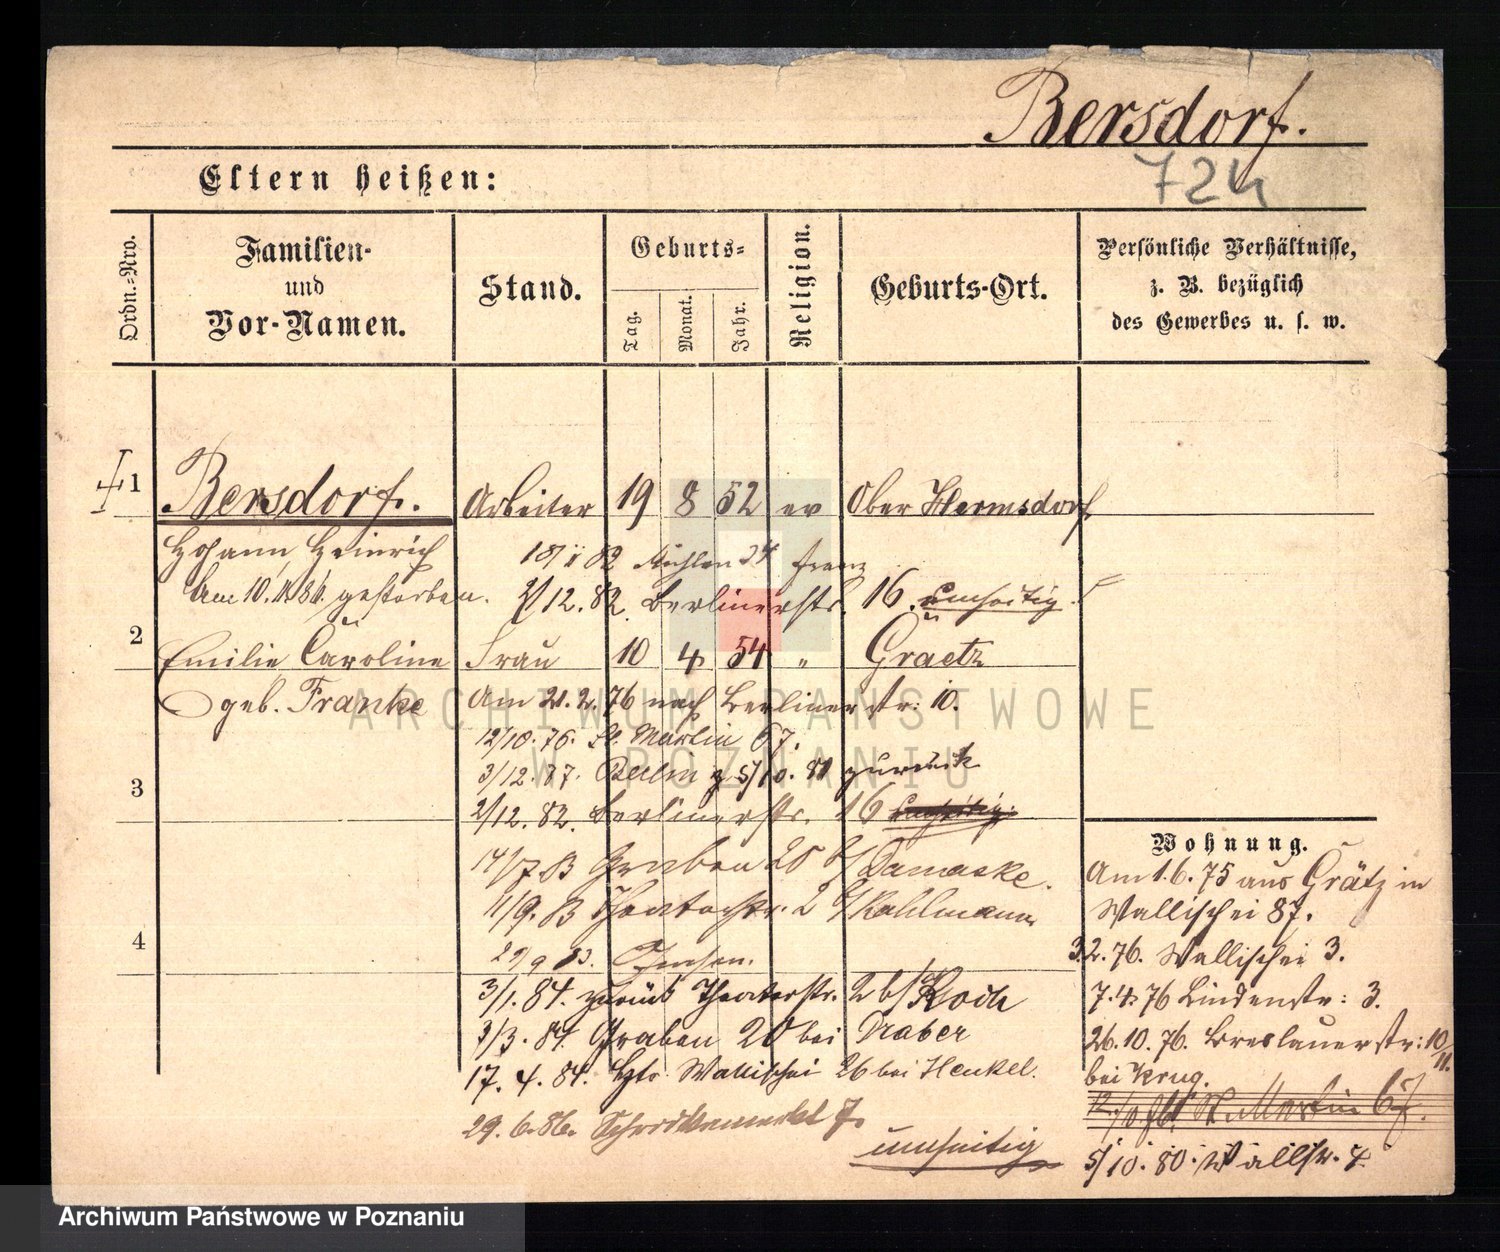 Bersdorf.
724
Eltern heißen:
Ordn.-Nro.
Familien-
und
Vor-Namen.
Stand.
Geburts-
Tag.
Monat.
Jahr.
Religion.
Geburts-Ort.
Persönliche Verhältnisse,
z. B. bezüglich
des Gewerbes u. s. w.
1 Bersdorf. Arbeiter 19 8 52 ev Ober Hermsdorf
Johann Heinrich
18/11 82 Mühlen 34 Franz
Am 10. 11. 86. gestorben.
2/12. 82. Berlinerstr. 16. umseitig.
2 Emilie Caroline Frau 10 4 54 " Graetz
geb. Franke
Am 21. 2. 76 nach Berliner str: 10.
12/10. 76. St. Martin 67.
3 3/12. 87. Berlin 5/10. 80 zurück
2/12. 82. Berlinerstr. 16 umseitig.
14/7. Graben 20 b/ Damaske.
11/9. Theaterstr. 2 b/ Kahlmann
4 29/9 83.
3/1. 84. zurück Theaterstr. 2 b/ Koch
3/3. 84. Graben 20 bei Draber
17. 4. 84. Wallischei 26 bei Henkel.
29. 6. 86. 7.
umseitig
Wohnung.
Am 1. 6. 75 aus Grätz in
Wallischei 87.
3.2. 76. Wallischei 3.
7. 4. 76 Lindenstr: 3.
26. 10. 76. Breslauer str: 10/11.
bei Krug.
St. Martin 67.
5/10. 80. Wallstr. 4.
ARCHIWUM PAŃSTWOWE
W POZNANIU
Archiwum Państwowe w Poznaniu